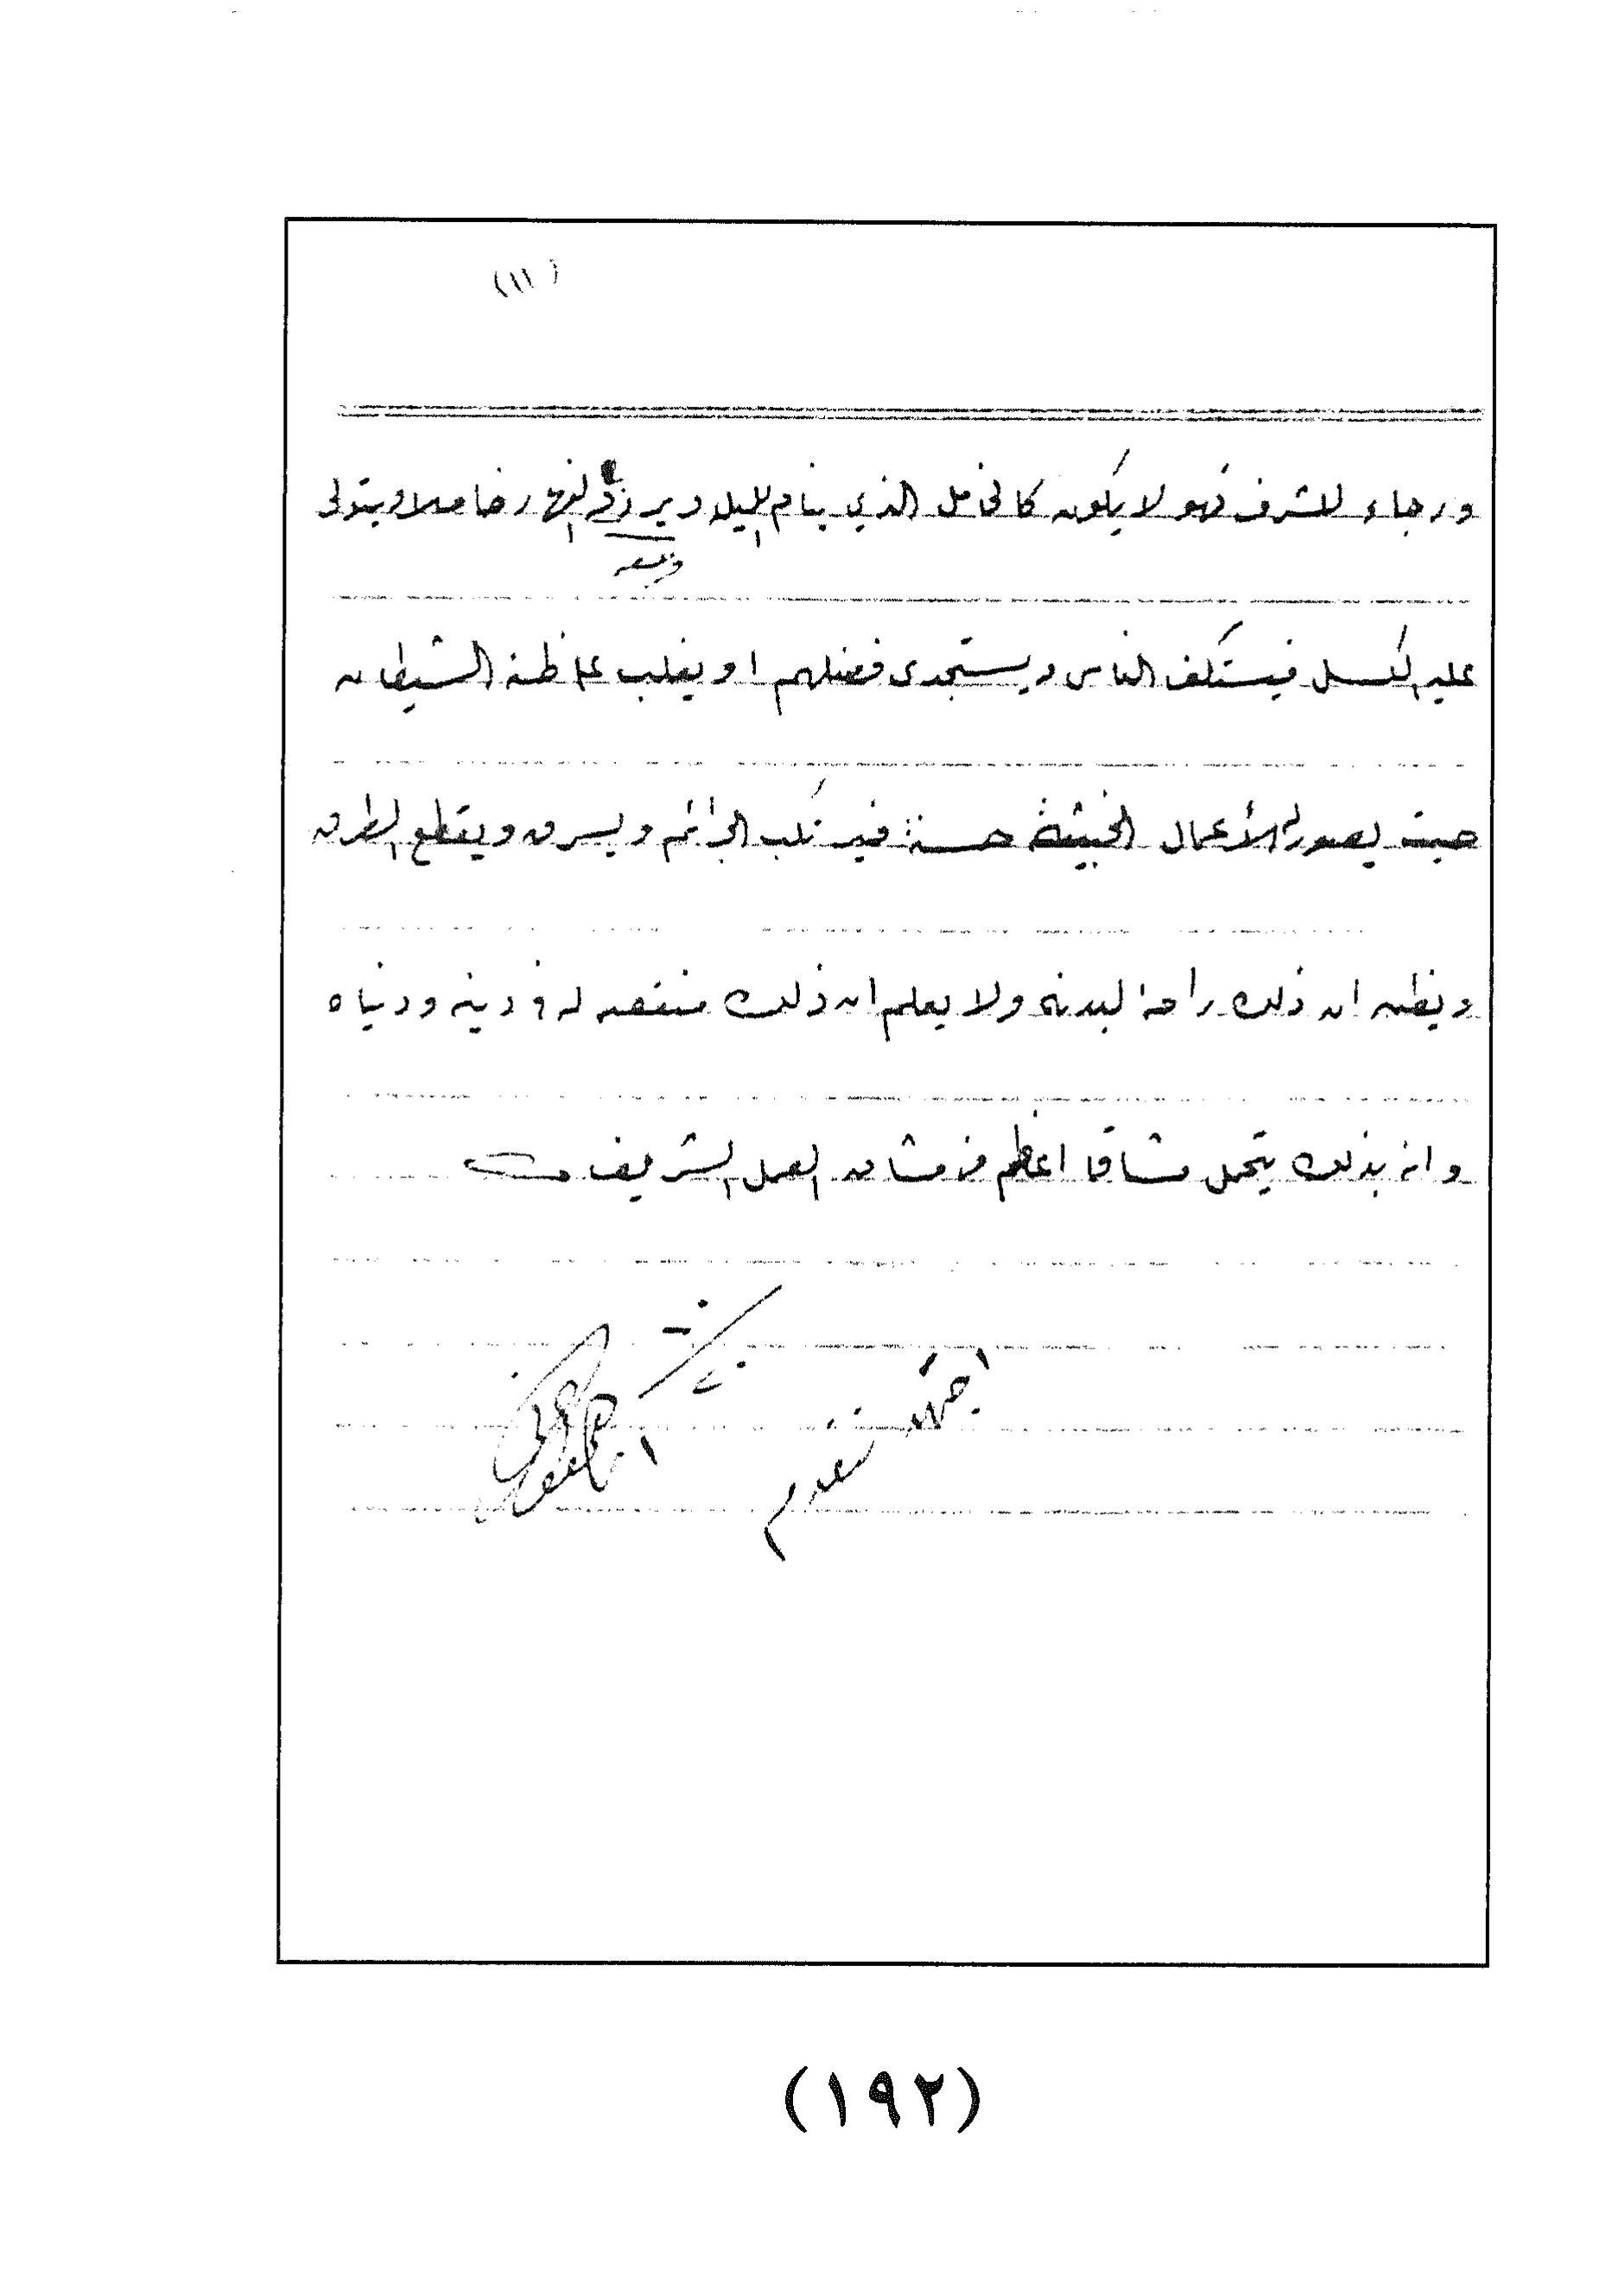 (١١)
ورجاء للشرف فهو لا يكون كالخامل الذي ينام الليل ويبرز في النهار خاملا ويتولى
وبعه
عليه الكسل فيستكف الناس ويستجدى فضلهم او يغلب على ظنه الشيطان
حيث يصور له الأعمال الخبيثة حسنة فيرتكب الجرائم ويسرق ويقطع الطرق
ويظن ان ذلك راحة لبدنه ولا يعلم ان ذلك منقصه له في دينه ودنياه
وانه بذلك يتحمل مشاقا اعظم من مشاق العمل الشريف
اجتهد تتقدم
(١٩٢)